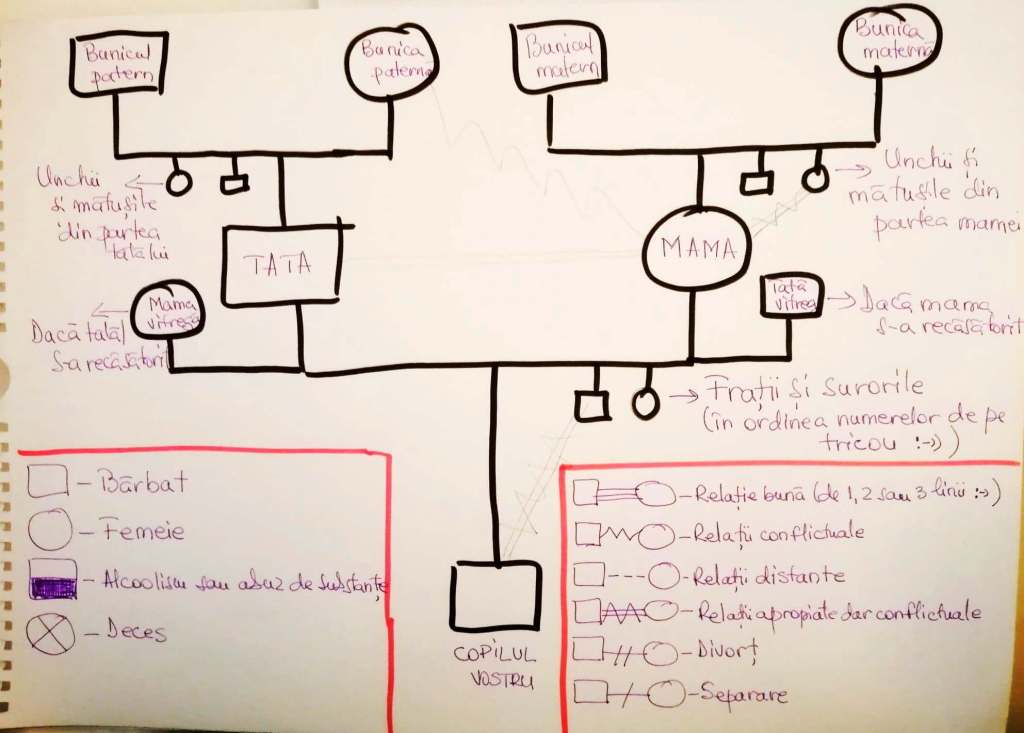 Bunicul
patern
Bunica
paternă
Bunicul
matern
Bunica
maternă
Unchii
si mătușile
din partea
tatălui
Unchii și
mătusile din
partea mamei
TATA
MAMA
Mama
vitregă
Dacă tatăl
s-a recăsătorit
Tată
vitreg
Dacă mama
s-a recăsătorit
Frații si surorile
(în ordinea numerelor de pe
tricou :->)
COPILUL
VOSTRU
- Bărbat
- Femeie
- Alcoolism sau abuz de substanțe
- Deces
- Relație bună (de 1, 2 sau 3 linii :->)
- Relații conflictuale
- Relații distante
- Relatii apropiate dar conflictuale
- Divorț
- Separare